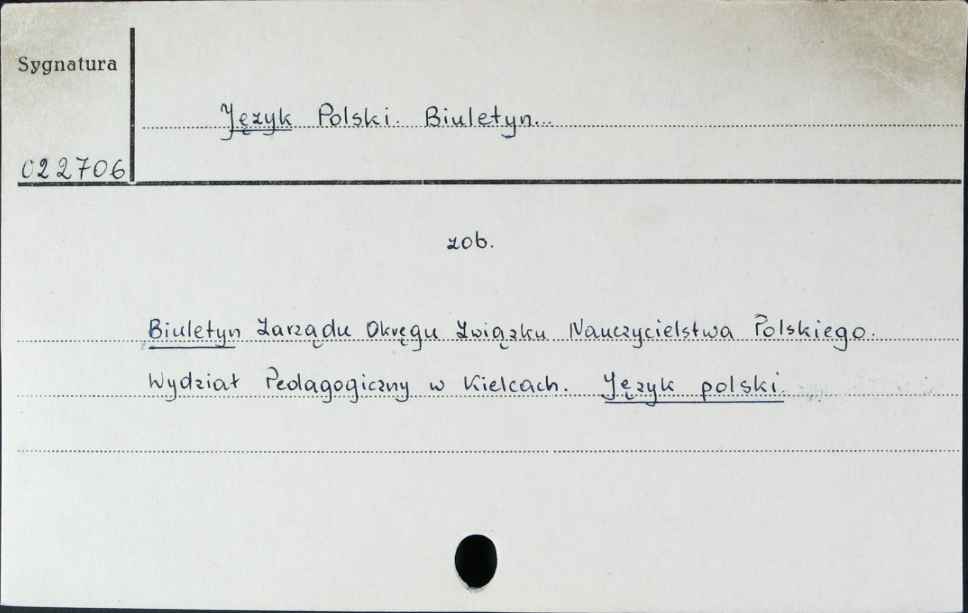 Sygnatura
Język Polski. Biuletyn...
022706
zob.
Biuletyn Zarządu Okręgu Związku Nauczycielstwa Polskiego.
Wydział Pedagogiczny w Kielcach. Język polski.